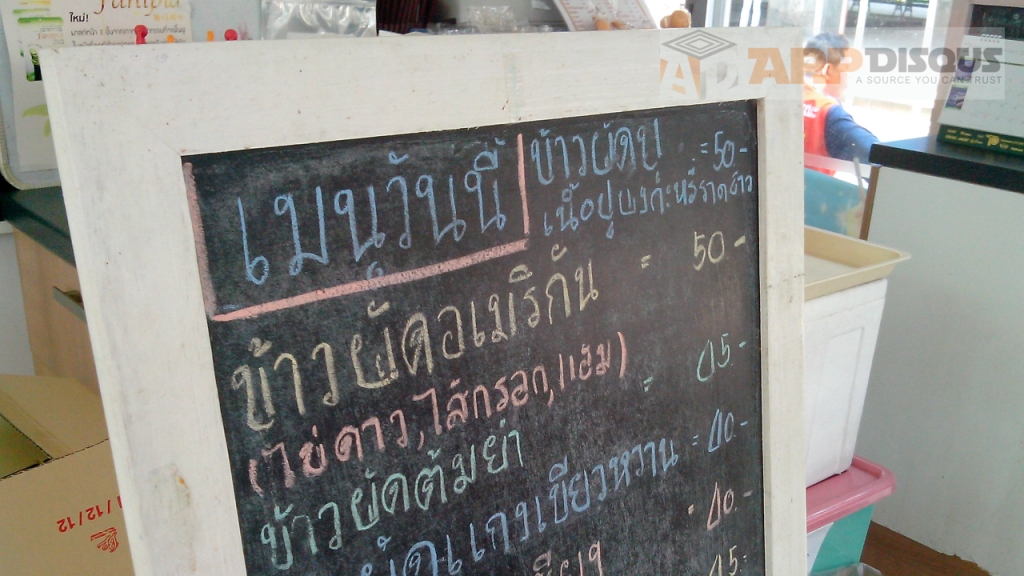 ใหม่!
APPDISQUS
A SOURCE YOU CAN TRUST
เมนูวันนี้
ข้าวผัดปู
= 50.-
เนื้อปูผงกะหรี่ราดข้าว
ข้าวผัดอเมริกัน = 50.-
(ไข่ดาว,ไส้กรอก,แฮม)
ข้าวผัดต้มยำ = 45.-
ผัดแกงเขียวหวาน = 40.-
40.-
45.-
/12/12